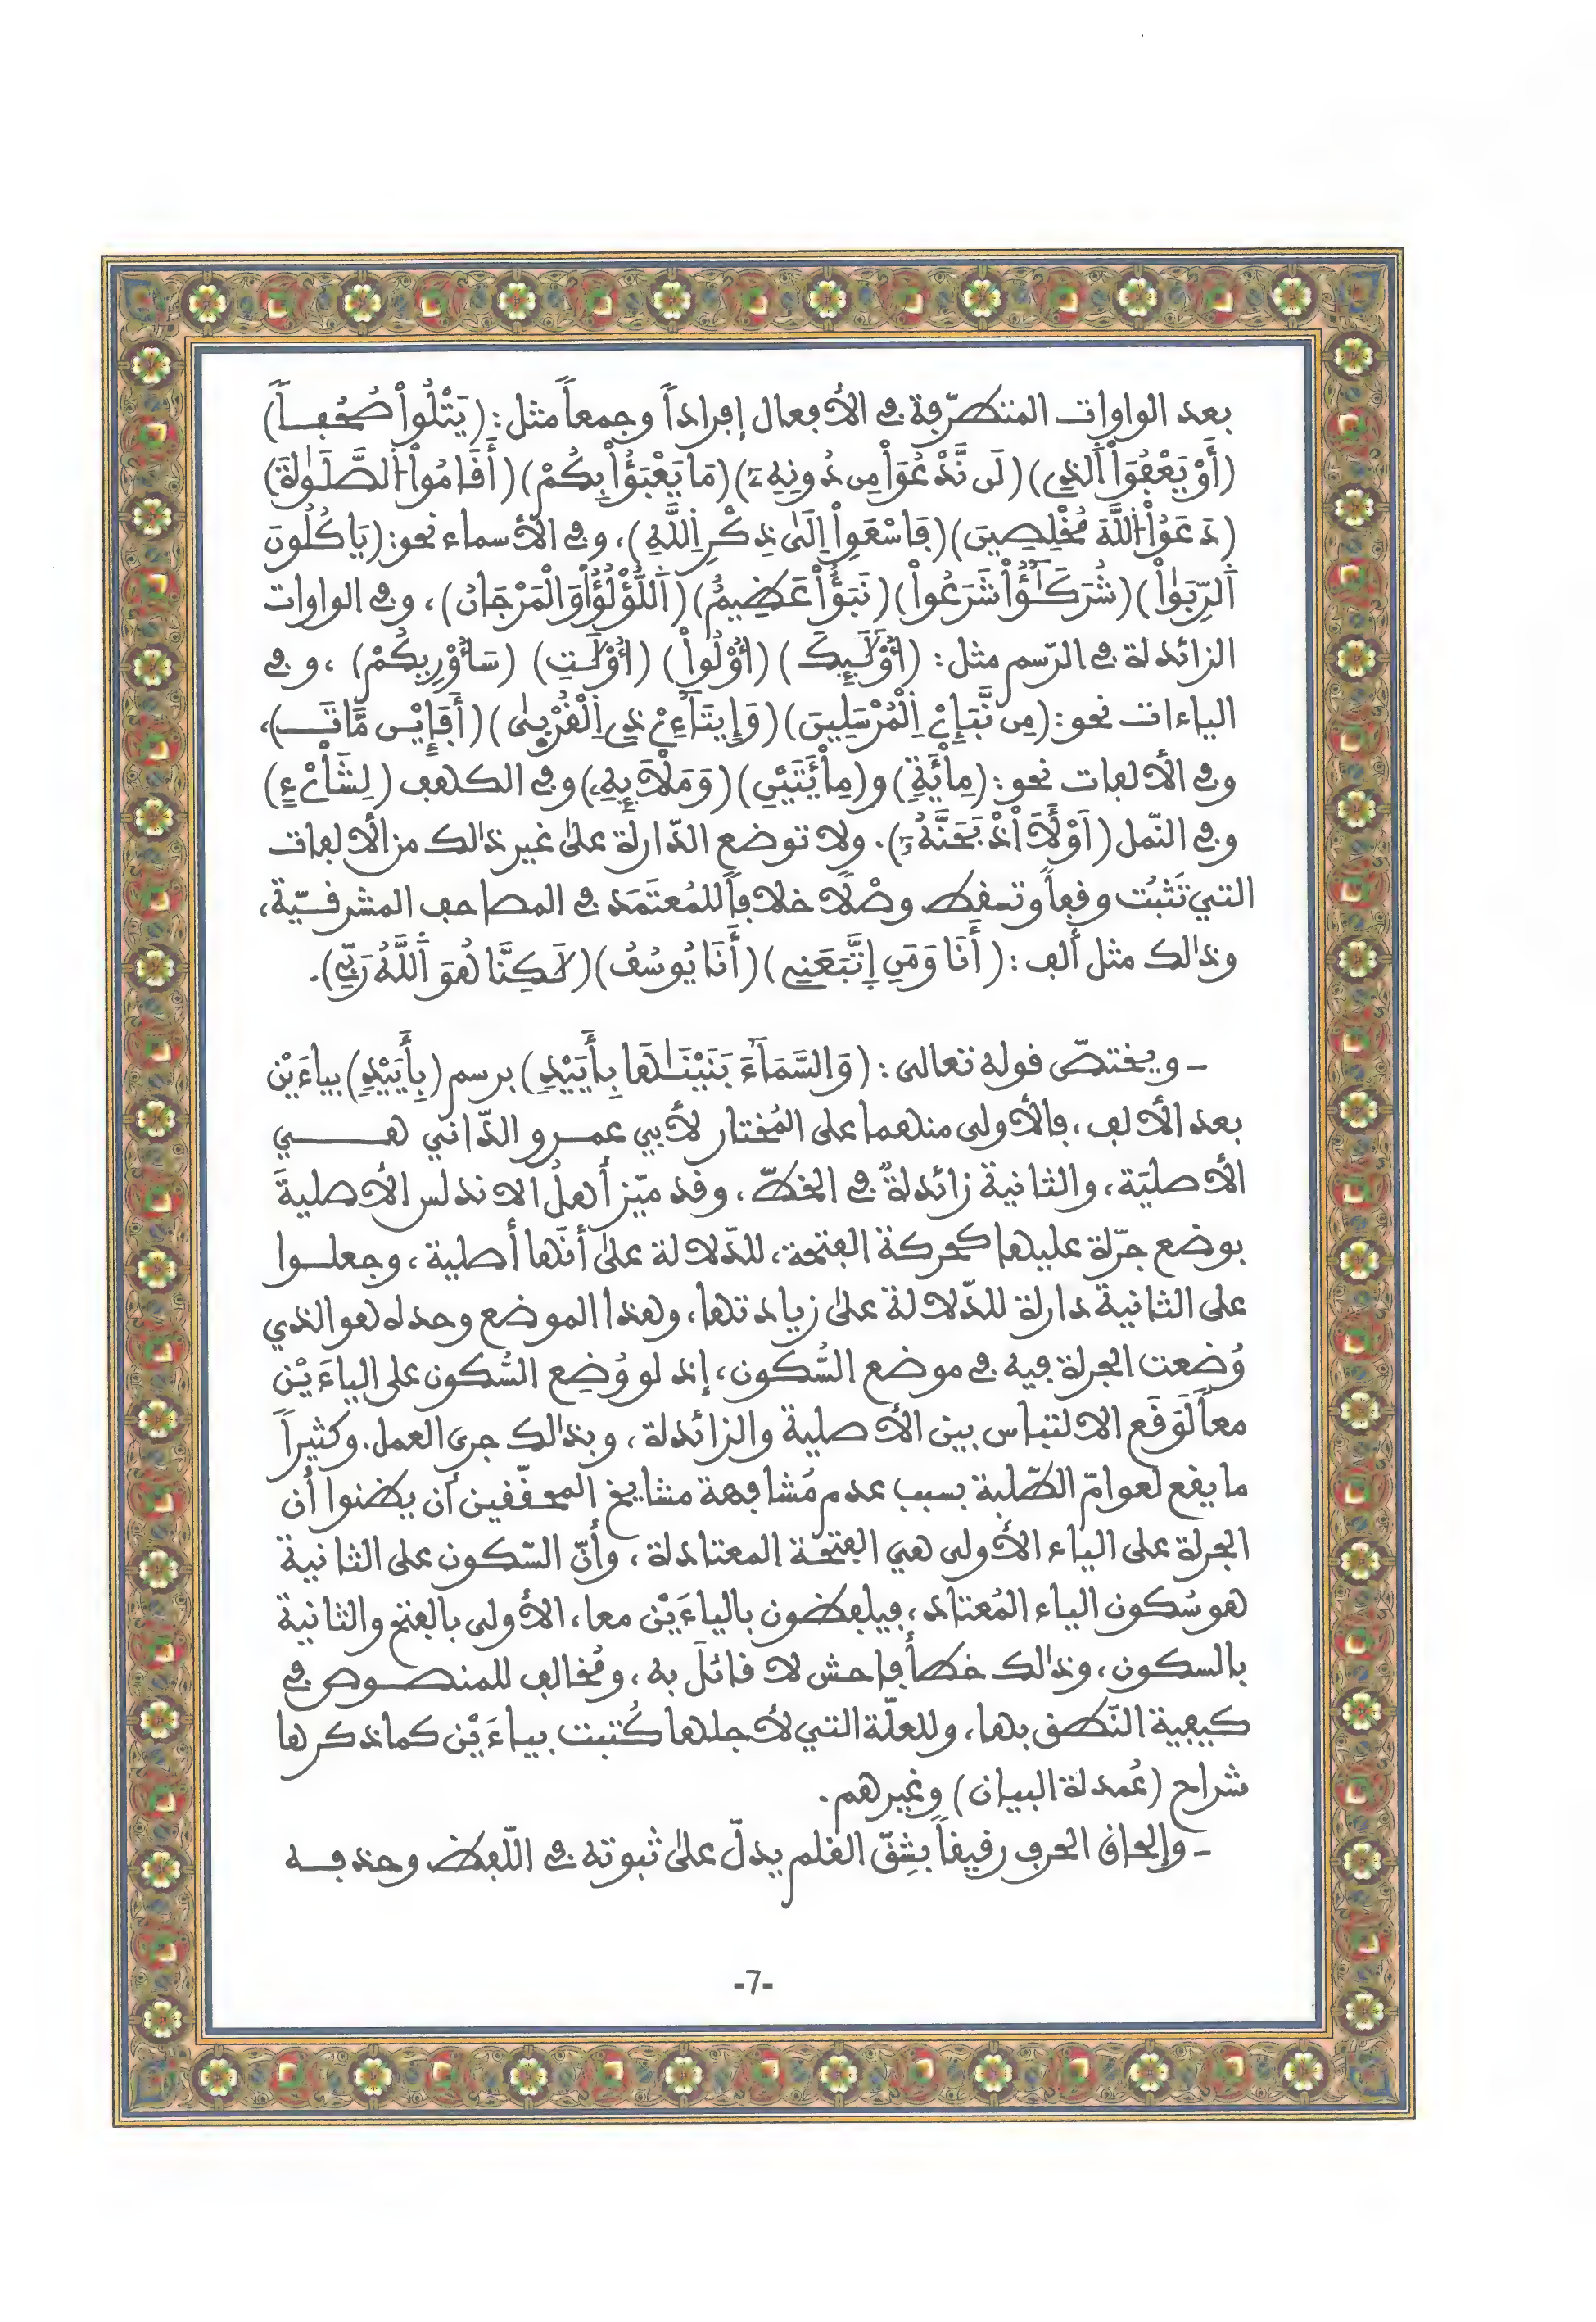 بعد الواوات المتطرّفة في الأفعال إفراداً وجمعاً مثل: (يَتْلُواْ صُحُفاً)
(أَوْ يَعْفُوَاْ اَلذِي) (لَن نَّدْعُوَاْ مِن دُونِهِۦ) (مَا يَعْبَؤُاْ بِكُمْ) (أَقَامُواْ اُلصَّلَوٰةَ)
(دَعَوُاْ اُللَّهَ مُخْلِصِينَ) (فَاسْعَوِاْ اِلَىٰ ذِكْرِ اِللَّهِ)، وفي الأسماء نحو: (يَاكُلُونَ
اَلرِّبَوٰاْ) (شُرَكَـٰٓؤُاْ شَرَعُواْ) (نَبَؤُاْ عَظِيمٌ) (اُللُّؤْلُؤُاْ وَالْمَرْجَانُ)، وفي الواوات
الزائدة في الرّسم مثل: (أُوْلَـٰٓئِكَ) (أُوْلُواْ) (أُوْلَـٰتِ) (سَأُوْرِيكُمْ)، وفي
الياءات نحو: (مِن نَّبَإِےْ اِلْمُرْسَلِينَ) (وَإِيتَآءِےْ ذِي اِلْقُرْبىٰ) (أَفَإِيْن مَّاتَ)،
وفي الألفات نحو: (مِاْئَةٍ) و(مِاْئَتَيْنِ) (وَمَلَإِيْهِ) وفي الكهف (لِشَاْےْءٍ)
وفي النّمل (أَوْ لَأَاْذْبَحَنَّهُۥ). ولا توضع الدّارة على غير ذٰلك من الألفات
التي تَثبُت وقفاً وتسقط وصْلًا خلافاً للمُعتَمَد في المصاحف المشرقيّة،
وذٰلك مثل ألف: (أَنَا وَمَنِ اِتَّبَعَنِي) (أَنَا يُوسُفُ) (لَّـٰكِنَّا هُوَ اَللَّهُ رَبِّي).
- ويختصّ قوله تعالى: (وَالسَّمَآءَ بَنَيْنَـٰهَا بِأَيَيْدٍ) برسم (بِأَيَيْدٍ) بياءَيْن
بعد الألف، فالأولى منهما على المُختار لأبي عمرو الدّاني هي
الأصليّة، والثانية زائدةٌ في الخطّ، وقد ميّز أهلُ الاندلس الأصليةَ
بوضع جرّة عليها كحركة الفتحة، للدّلالة على أنّها أصلية، وجعلوا
على الثانية دارة للدّلالة على زيادتها، وهذا الموضع وحده هو الذي
وُضعت الجرة فيه في موضع السُّكون، إذ لو وُضِع السُّكون على الياءَيْن
معاً لَوَقَع الالتباس بين الأصلية والزائدة، وبذٰلك جرى العمل. وكثيراً
ما يقع لعوامّ الطّلبة بسبب عدم مُشافهة مشايخ المحقّقين أن يظنوا أن
الجرة على الياء الأولى هي الفتحة المعتادة، وأنّ السّكون على الثانية
هو سُكون الياء المُعتاد، فيلفظون بالياءَيْن معا، الأولى بالفتح والثانية
بالسكون، وذٰلك خطأ فاحش لا قائلَ به، ومُخالف للمنصوص في
كيفية النّطق بها، وللعلّة التي لأجلها كُتبت بياءَيْن كما ذكرها
شراح (عُمدة البيان) وغيرهم.
- وإلحاق الحرف رقيقاً بشِقّ القلم يدلّ على ثبوته في اللّفظ وحذفه
-7-